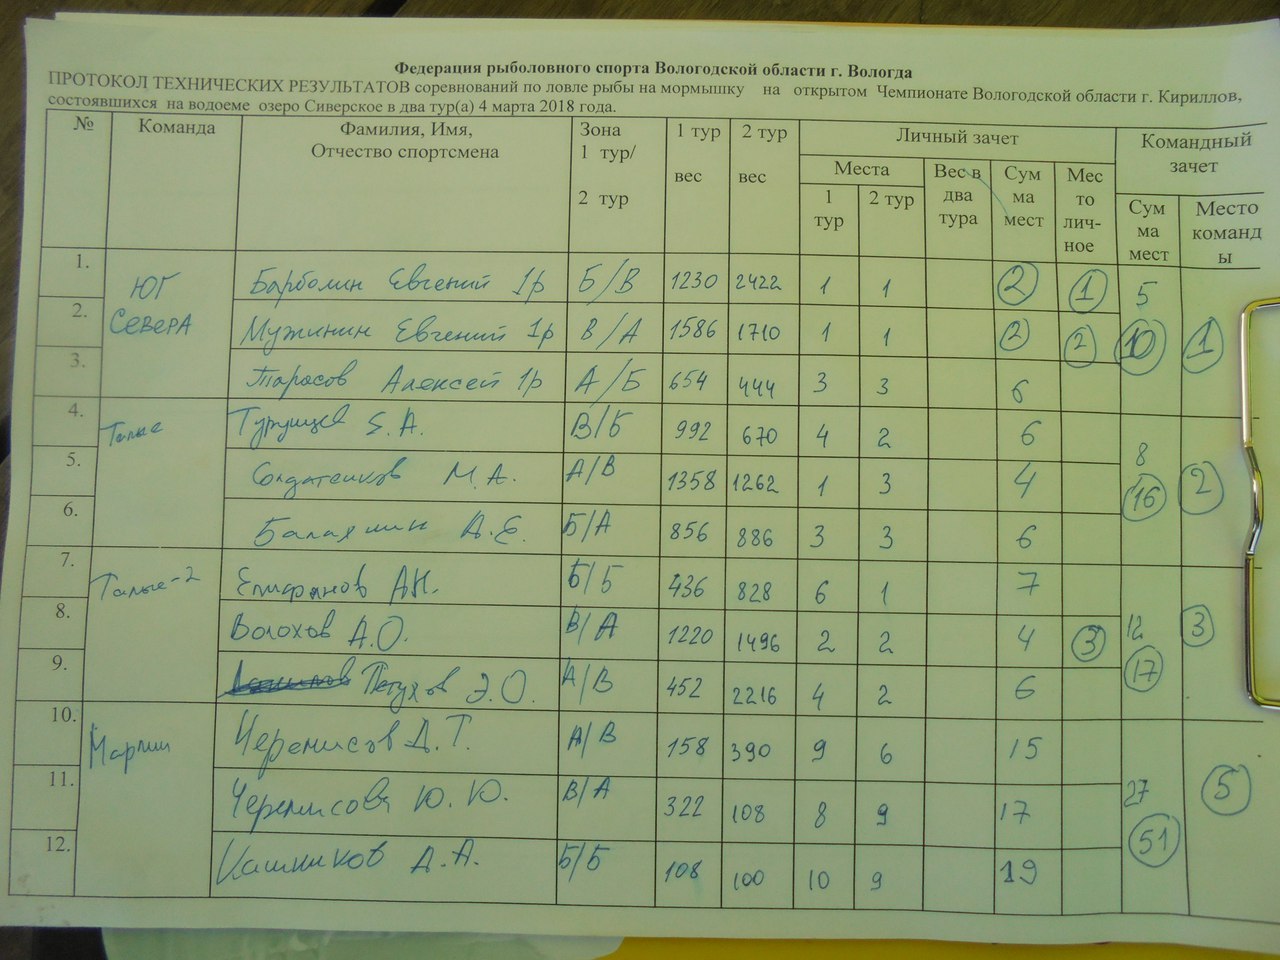 Федерация рыболовного спорта Вологодской области г. Вологда
ПРОТОКОЛ ТЕХНИЧЕСКИХ РЕЗУЛЬТАТОВ соревнований по ловле рыбы на мормышку на открытом Чемпионате Вологодской области г. Кириллов,
состоявшихся на водоеме озеро Сиверское в два тур(а) 4 марта 2018 года.
№ Команда Фамилия, Имя, Отчество спортсмена Зона 1 тур/ 2 тур 1 тур вес 2 тур вес Личный зачет Командный зачет
Места Вес в два тура Сум ма мест Мес то лич- ное Сум ма мест Место команд ы
1 тур 2 тур
1. ЮГ Севера Барболин Евгений 1р Б/В 1230 2422 1 1 2 1 5
2. Мужинин Евгений 1р В/А 1586 1710 1 1 2 2 10 1
3. Тарасов Алексей 1р А/Б 654 444 3 3 6
4. Талые В/Б 992 670 4 2 6 8
5. Солдатенков М.А. А/В 1358 1262 1 3 4 16 2
6. Балахнин А.Е. Б/А 856 886 3 3 6
7. Талые-2 Епифанов А.Н. Б/Б 436 828 6 1 7
8. Волохов А.О. В/А 1220 1496 2 2 4 3 12 3
9. Петухов Э.О. А/В 452 2216 4 2 6 17
10. Черемисов Д.Т. А/В 158 390 9 6 15
11. Черемисова Ю.Ю. В/А 322 108 8 9 17 27 5
12. Кашников А.А. Б/Б 108 100 10 9 19 51